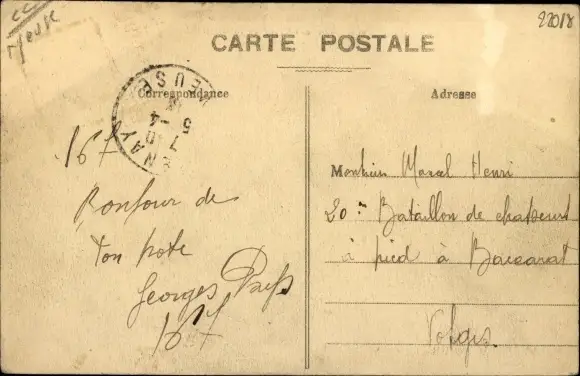 CC
Meuse
22018
CARTE POSTALE
Correspondance
Adresse
MEUSE
5
7 -4
167
Bonjour de
ton pote
Georges
167
Monsieur Marcel Henri
20e Bataillon de chasseurs
à pied à Baccarat
Vosges